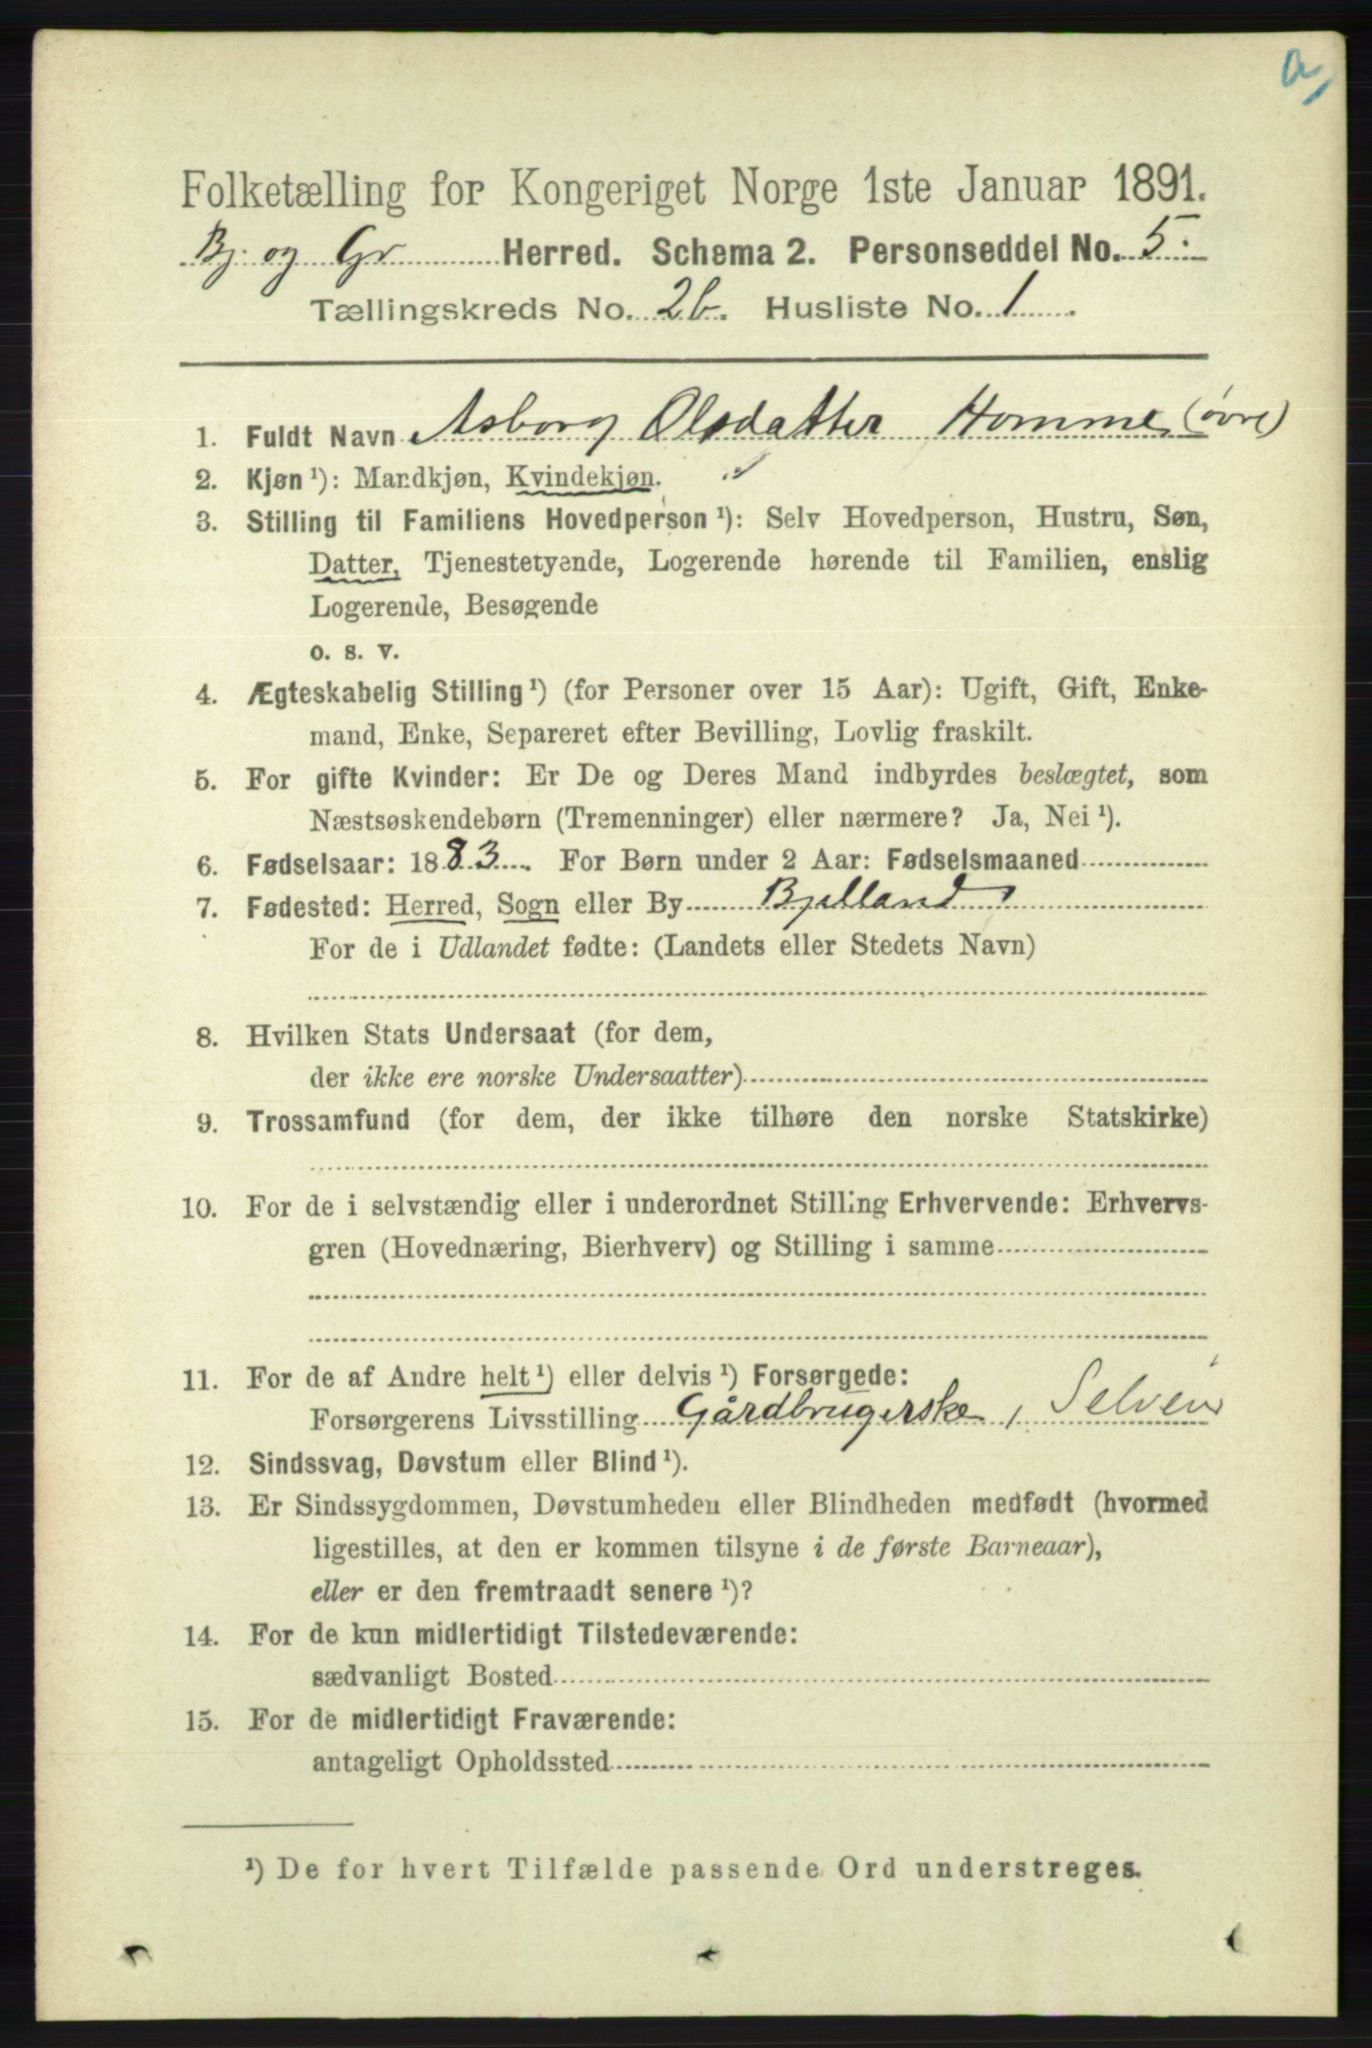 a)
Folketælling for Kongeriget Norge 1ste Januar 1891.
Bj. og Gr Herred. Schema 2. Personseddel No. 5.
Tællingskreds No. 2b. Husliste No. 1.
1. Fuldt Navn Asborg Olsdatter Homme (övre)
2. Kjøn ¹): Mandkjøn, Kvindekjøn.
3. Stilling til Familiens Hovedperson ¹): Selv Hovedperson, Hustru, Søn,
Datter, Tjenestetyende, Logerende hørende til Familien, enslig
Logerende, Besøgende
o. s. v.
4. Ægteskabelig Stilling ¹) (for Personer over 15 Aar): Ugift, Gift, Enke-
mand, Enke, Separeret efter Bevilling, Lovlig fraskilt.
5. For gifte Kvinder: Er De og Deres Mand indbyrdes beslægtet, som
Næstsøskendebørn (Tremenninger) eller nærmere? Ja, Nei ¹).
6. Fødselsaar: 1883. For Børn under 2 Aar: Fødselsmaaned
7. Fødested: Herred, Sogn eller By Bjelland
For de i Udlandet fødte: (Landets eller Stedets Navn)
8. Hvilken Stats Undersaat (for dem,
der ikke ere norske Undersaatter)
9. Trossamfund (for dem, der ikke tilhøre den norske Statskirke)
10. For de i selvstændig eller i underordnet Stilling Erhvervende: Erhvervs-
gren (Hovednæring, Bierhverv) og Stilling i samme
11. For de af Andre helt ¹) eller delvis ¹) Forsørgede:
Forsørgerens Livsstilling Gårdbrugerske, Selvei
12. Sindssvag, Døvstum eller Blind ¹).
13. Er Sindssygdommen, Døvstumheden eller Blindheden medfødt (hvormed
ligestilles, at den er kommen tilsyne i de første Barneaar),
eller er den fremtraadt senere ¹)?
14. For de kun midlertidigt Tilstedeværende:
sædvanligt Bosted
15. For de midlertidigt Fraværende:
antageligt Opholdssted
¹) De for hvert Tilfælde passende Ord understreges.